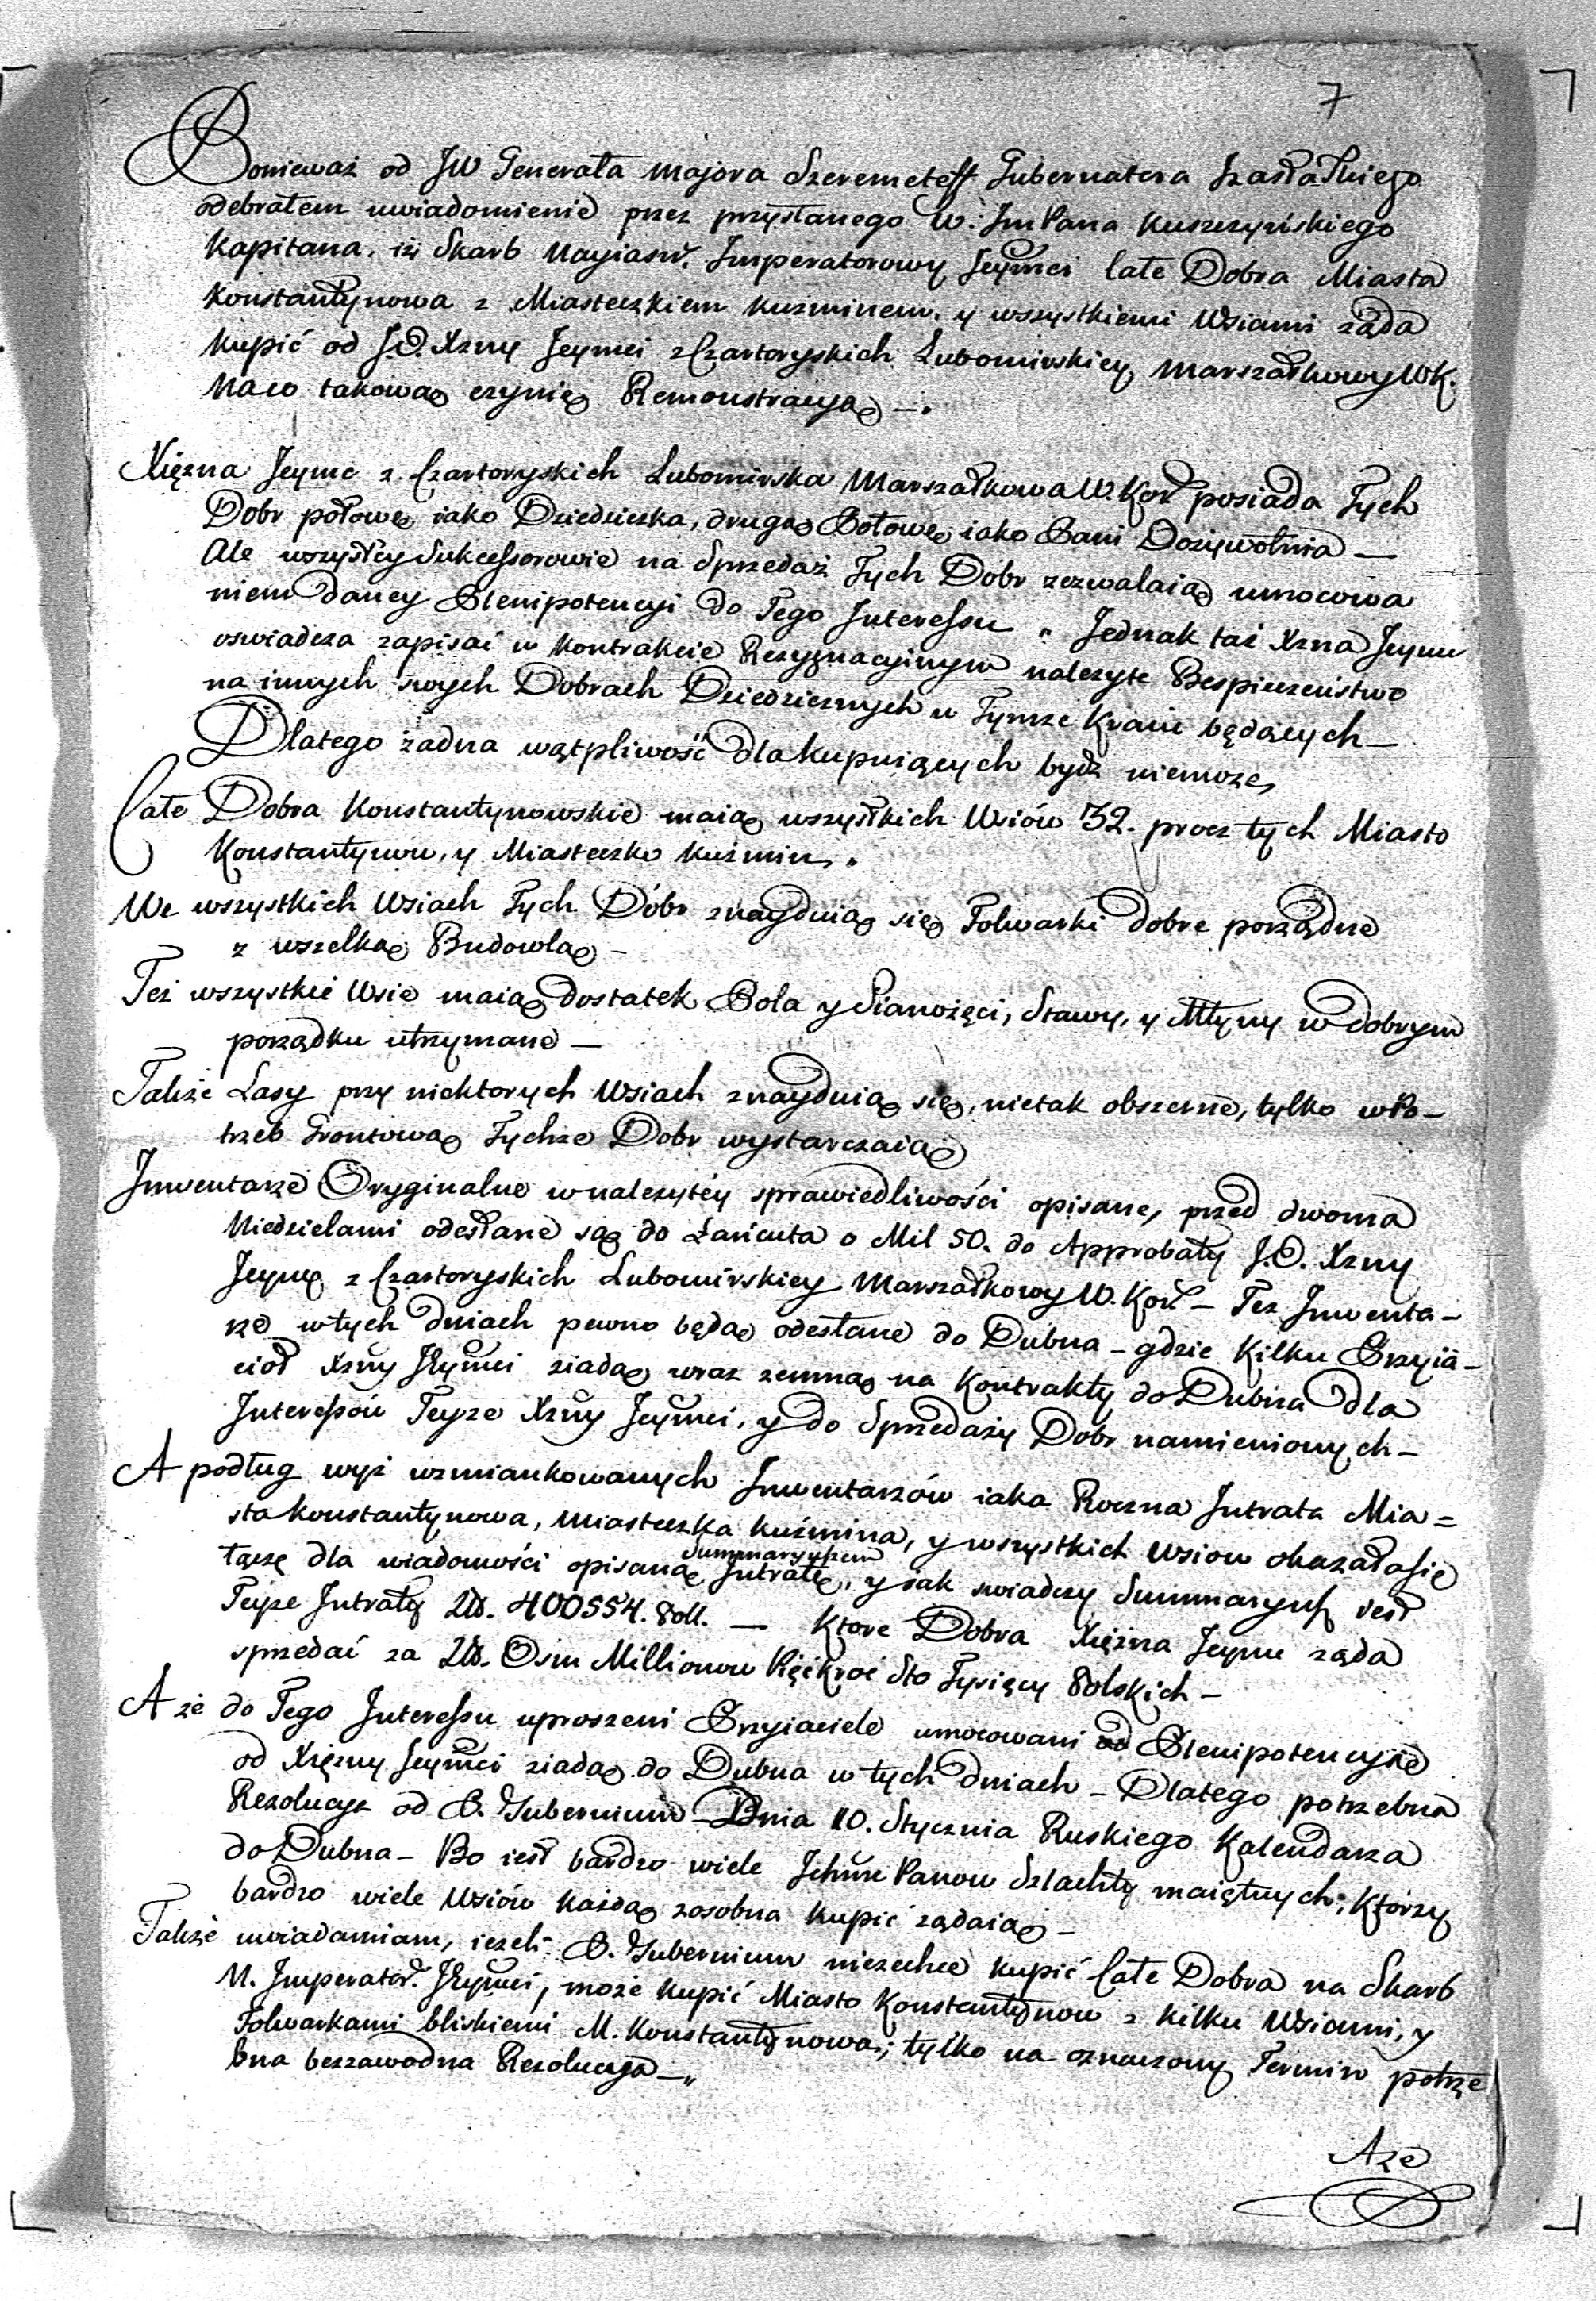 7
Ponieważ od JW Generała Majora Szeremeteff Gubernatora Izasławskiego
odebrałem uwiadomienie przez przysłanego W. JmPana Kuszczyńskiego
Kapitana, iż Skarb Nayiaśn. Imperatorowy Jeymci całe Dobra Miasta
Konstantynowa z Miasteczkiem Kuzminem, y wszystkiemi Wsiami żąda
kupić od J.O. Xzny Jeymci z Czartoryskich Lubomirskiey Marszałkowy WK.
Na co takową czynię Remonstracyą —.
Xiężna Jeymc z Czartoryskich Lubomirska Marszałkowa W. Kor posiada Tych
Dobr połowę iako Dziedziczka, drugą Połowę iako Pani Dożywotnia —
Ale wszyscy Sukcessorowie na Sprzedaż Tych Dobr zezwalaią umocowa
niem daney Plenipotencyi do Tego Interessu „ Jednak taż Xzna Jeymc
oswiadcza zapisać w Kontrakcie Rezygnacyinym należyte Bespieczeństwo
na innych swych Dobrach Dziedzicznych w Tymże Kraiu będących —
Dlatego żadna wątpliwość dla kupuiących bydź niemoże,
Całe Dobra Konstantynowskie maią wszystkich Wsiów 32. procz tych Miasto
Konstantynow, y Miasteczko Kuźmin,.
We wszystkich Wsiach Tych Dóbr znayduią się Folwarki dobre porządne
z wszelką Budowlą —
Też wszystkie Wsie maią dostatek Pola y Sianożęci, Stawy, y Młyny w dobrym
porządku utrzymane —
Także Lasy przy niektorych Wsiach znayduią się, nietak obszerne, tylko w Po-
trzeb Grontową Tychże Dobr wystarczaią
Inwentarze Oryginalne w należytéy sprawiedliwości opisane, przed dwoma
Niedzielami odesłane są do Łańcuta o Mil 50. do Approbaty J.O. Xzny
Jeymc z Czartoryskich Lubomirskiey Marszałkowy W. Kor — Też Inwenta-
rze w tych dniach pewno będą odesłane do Dubna — gdzie Kilku Przyia-
ciół Xzny Jeymci ziadą wraz zemną na Kontrakty do Dubna dla
Interessów Teyże Xzny Jeymci, y do Sprzedaży Dobr namienionych —
A podług wyż wzmiankowanych Inwentarzów iaka Roczna Intrata Mia=
sta Konstantynowa, Miasteczka Kuźmina, y wszystkich Wsiow okazałasie
Summaryuszem
łączę dla wiadomości opisaną Intratę, y jak swiadczy Summaryusz iest
Teyże Intraty Zł. 400554. Poll. — Ktore Dobra Xiężna Jeymc żąda
sprzedać za Zł. Osm Millionow Pięćkroć Sto Tysięcy Polskich —
A że do Tego Interessu uproszeni Przyiaciele umocowani Plenipotencyie
od Xiężny Jeymci ziadą do Dubna w tych dniach — Dlatego potrzebna
Rezolucya od P. Gubernium Dnia 10. Stycznia Ruskiego Kalendarza
do Dubna — Bo iest bardzo wiele Ichmc Panow Szlachty maiętnych; Którzy
bardzo wiele Wsiów każdą zosobna kupić żądaią —
Także uwiadamiam, ieżeli P. Gubernium niezechce kupić Całe Dobra na Skarb
N. Imperator. Jeymci, może kupić Miasto Konstantynow z kilku Wsiami, y
Folwarkami bliskiemi M. Konstantynowa; tylko na oznaczony Termin potrze
bna bezzawodna Rezolucya —„
Aże